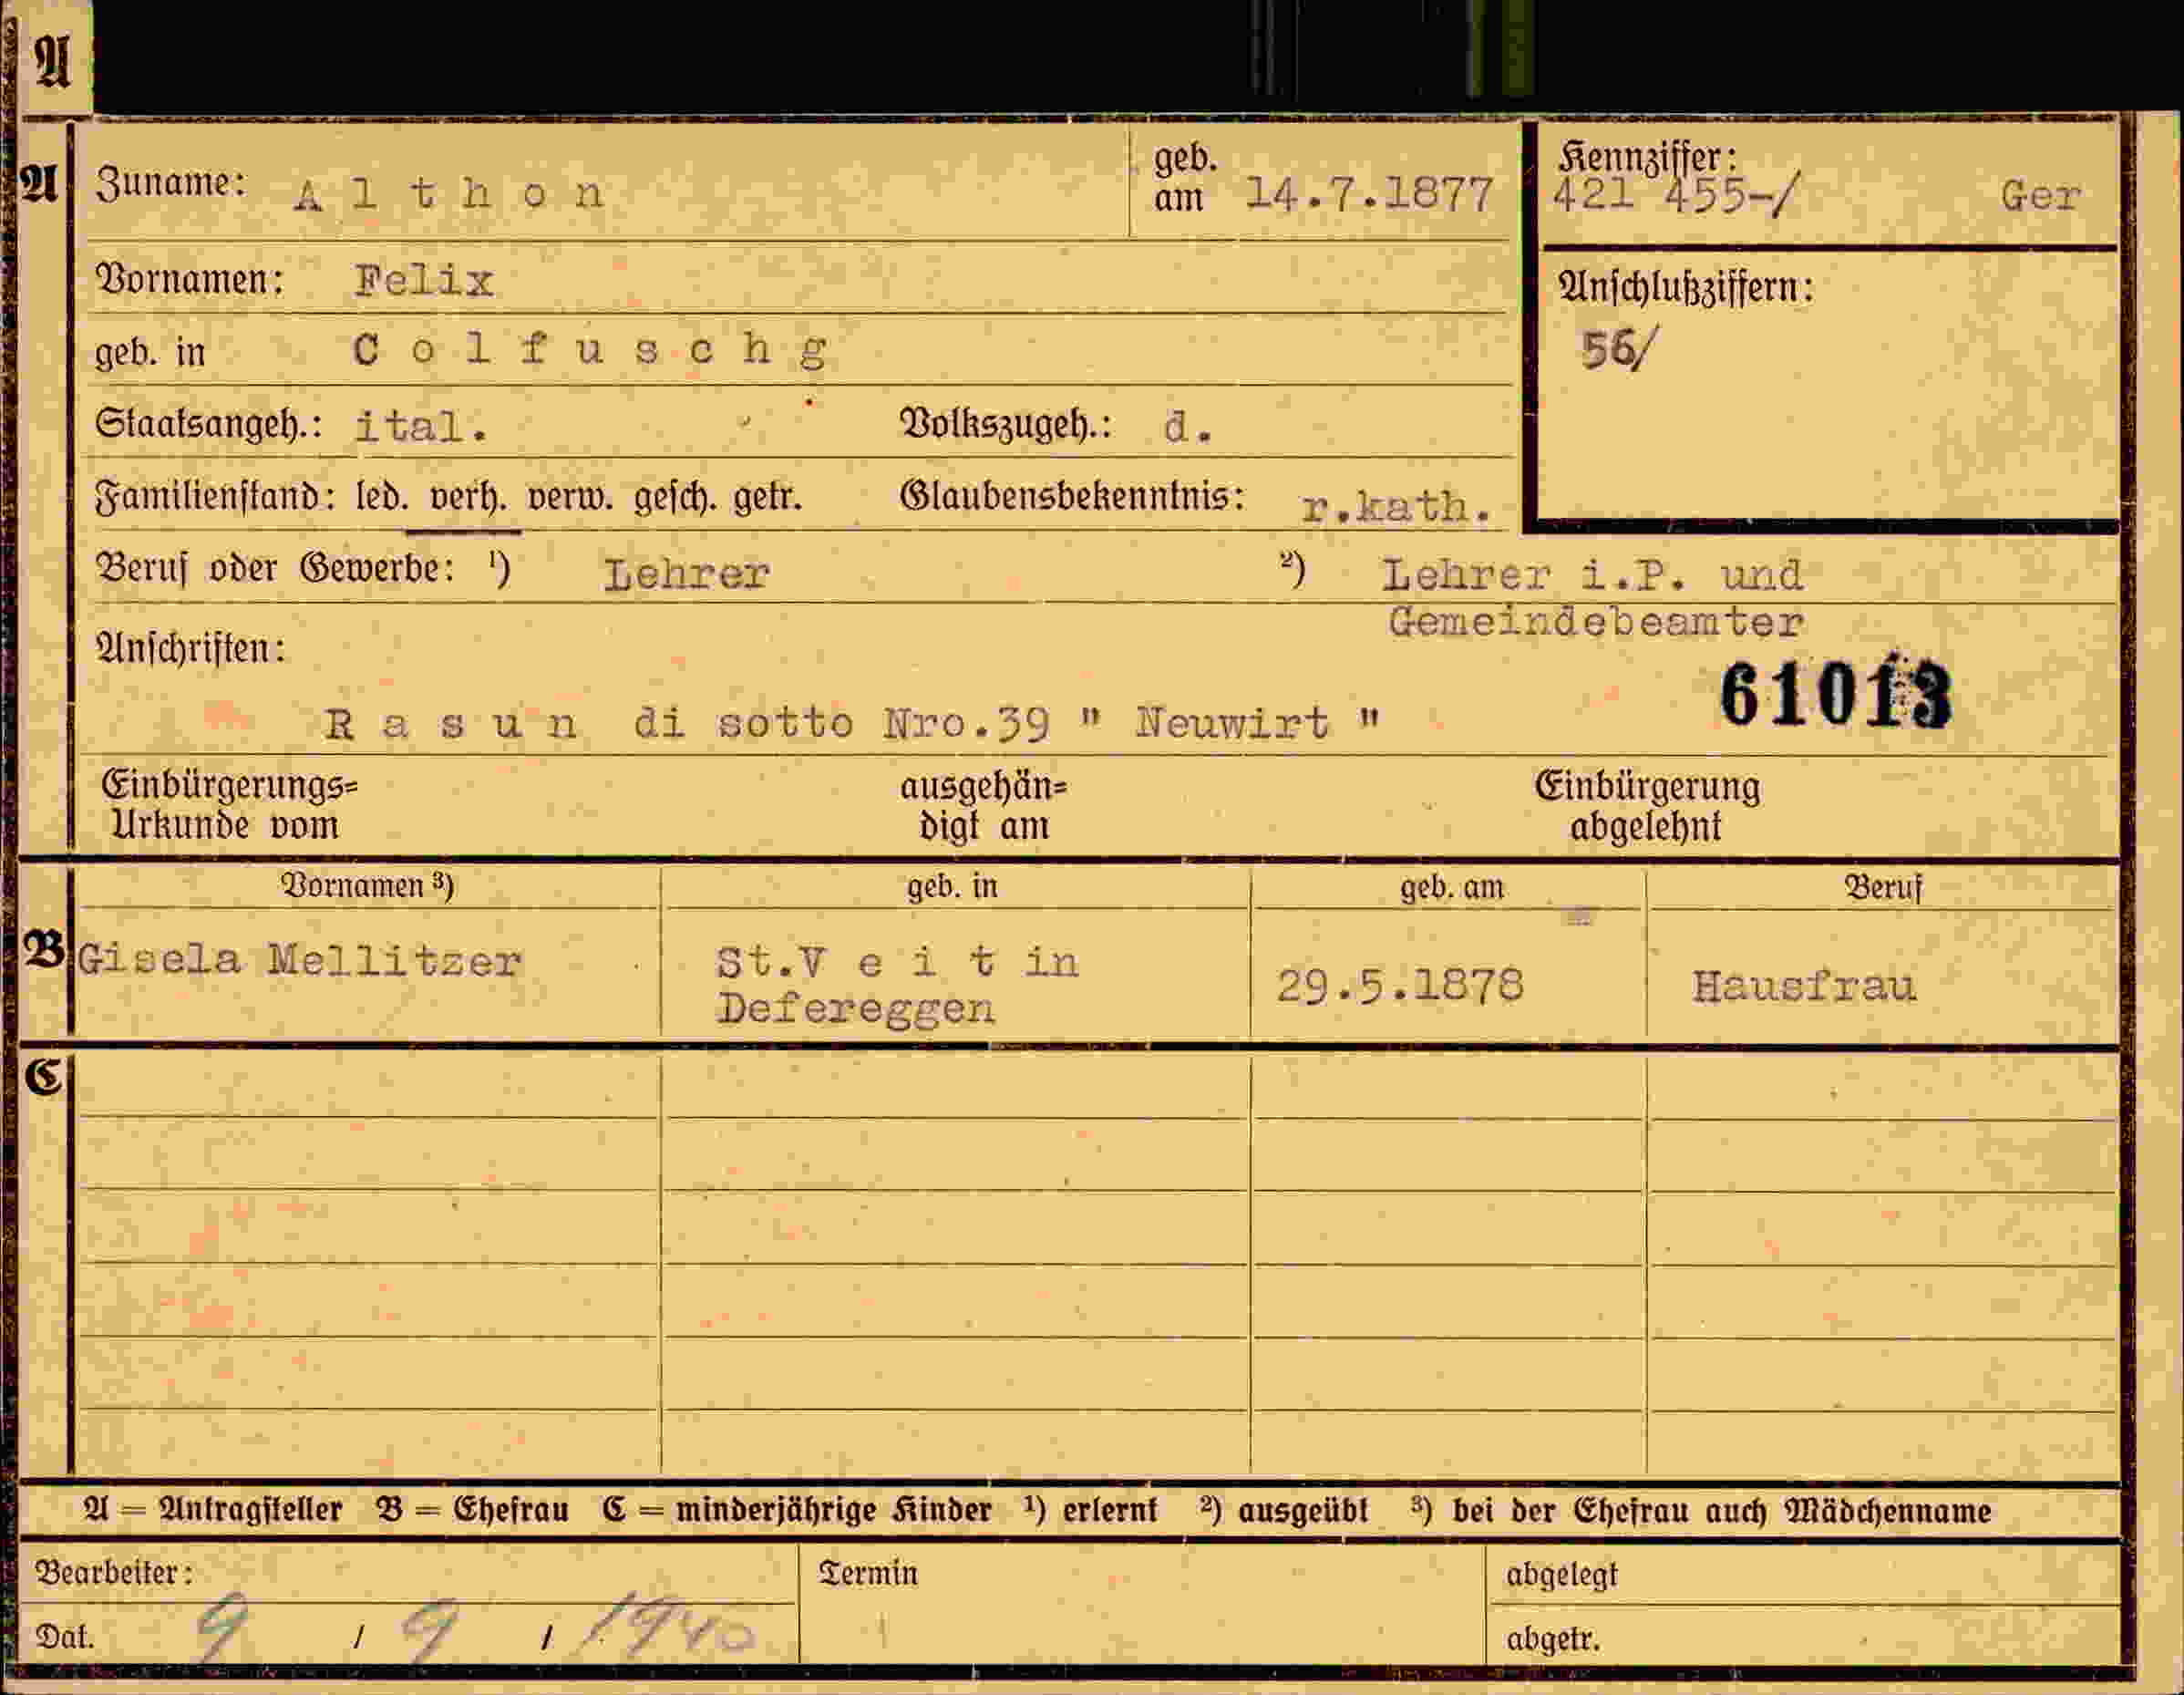 A
A Zuname: Althon geb. am 14.7.1877 Kennziffer: 421 455-/ Ger
Vornamen: Felix Anschlußziffern:
geb. in Colfuschg 56/
Staatsangeh.: ital. Volkszugeh.: d.
Familienstand: led. verh. verw. gesch. getr. Glaubensbekenntnis: r.kath.
Beruf oder Gewerbe: ¹) Lehrer ²) Lehrer i.P. und
Gemeindebeamter
Anschriften:
61013
Rasun di sotto Nro.39 " Neuwirt "
Einbürgerungs= ausgehän= Einbürgerung
Urkunde vom digt am abgelehnt
Vornamen ³) geb. in geb. am Beruf
B Gisela Mellitzer St.Veit in 29.5.1878 Hausfrau
Defereggen
C
A = Antragsteller B = Ehefrau C = minderjährige Kinder ¹) erlernt ²) ausgeübt ³) bei der Ehefrau auch Mädchenname
Bearbeiter: Termin abgelegt
Dat. 9 / 9 / 1940 abgetr.